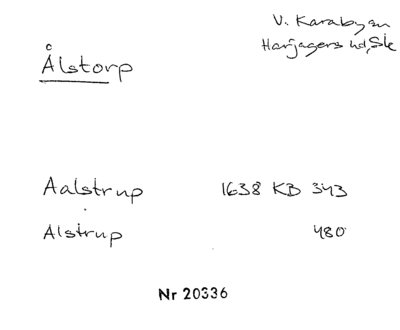 Ålstorp
V. Karaby sn
Harjagers hd, Sk
Aalstrup 1638 KB 343
Alstrup 480
Nr 20336